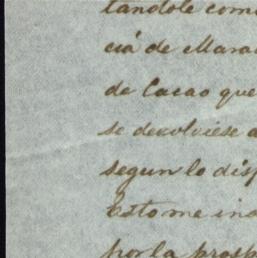 tandole com
cia de Mara
de Cacao que
se devolviese a
segun lo disp
Esto me ins
por la prosp